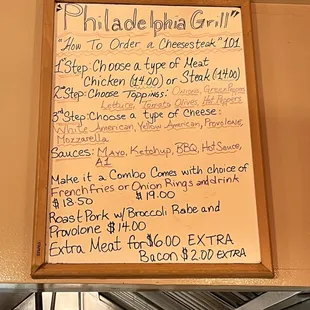 "Philadelphia Grill"
"How To Order a Cheesesteak" 101
1st Step: Choose a type of Meat
Chicken (14.00) or Steak (14.00)
2nd Step: Choose Toppings: Onions, Green Peppers
Lettuce, Tomato Olives, Hot Peppers
3rd Step: Choose a type of cheese:
White American, Yellow American, Provolone,
Mozzarella
Sauces: Mayo, Ketchup, BBQ, Hot Sauce,
A1
Make it a Combo Comes with choice of
French fries or Onion Rings and drink
$18.50 $19.00
Roast Pork w/ Broccoli Rabe and
Provolone $14.00
Extra Meat for $6.00 EXTRA
Bacon $2.00 EXTRA